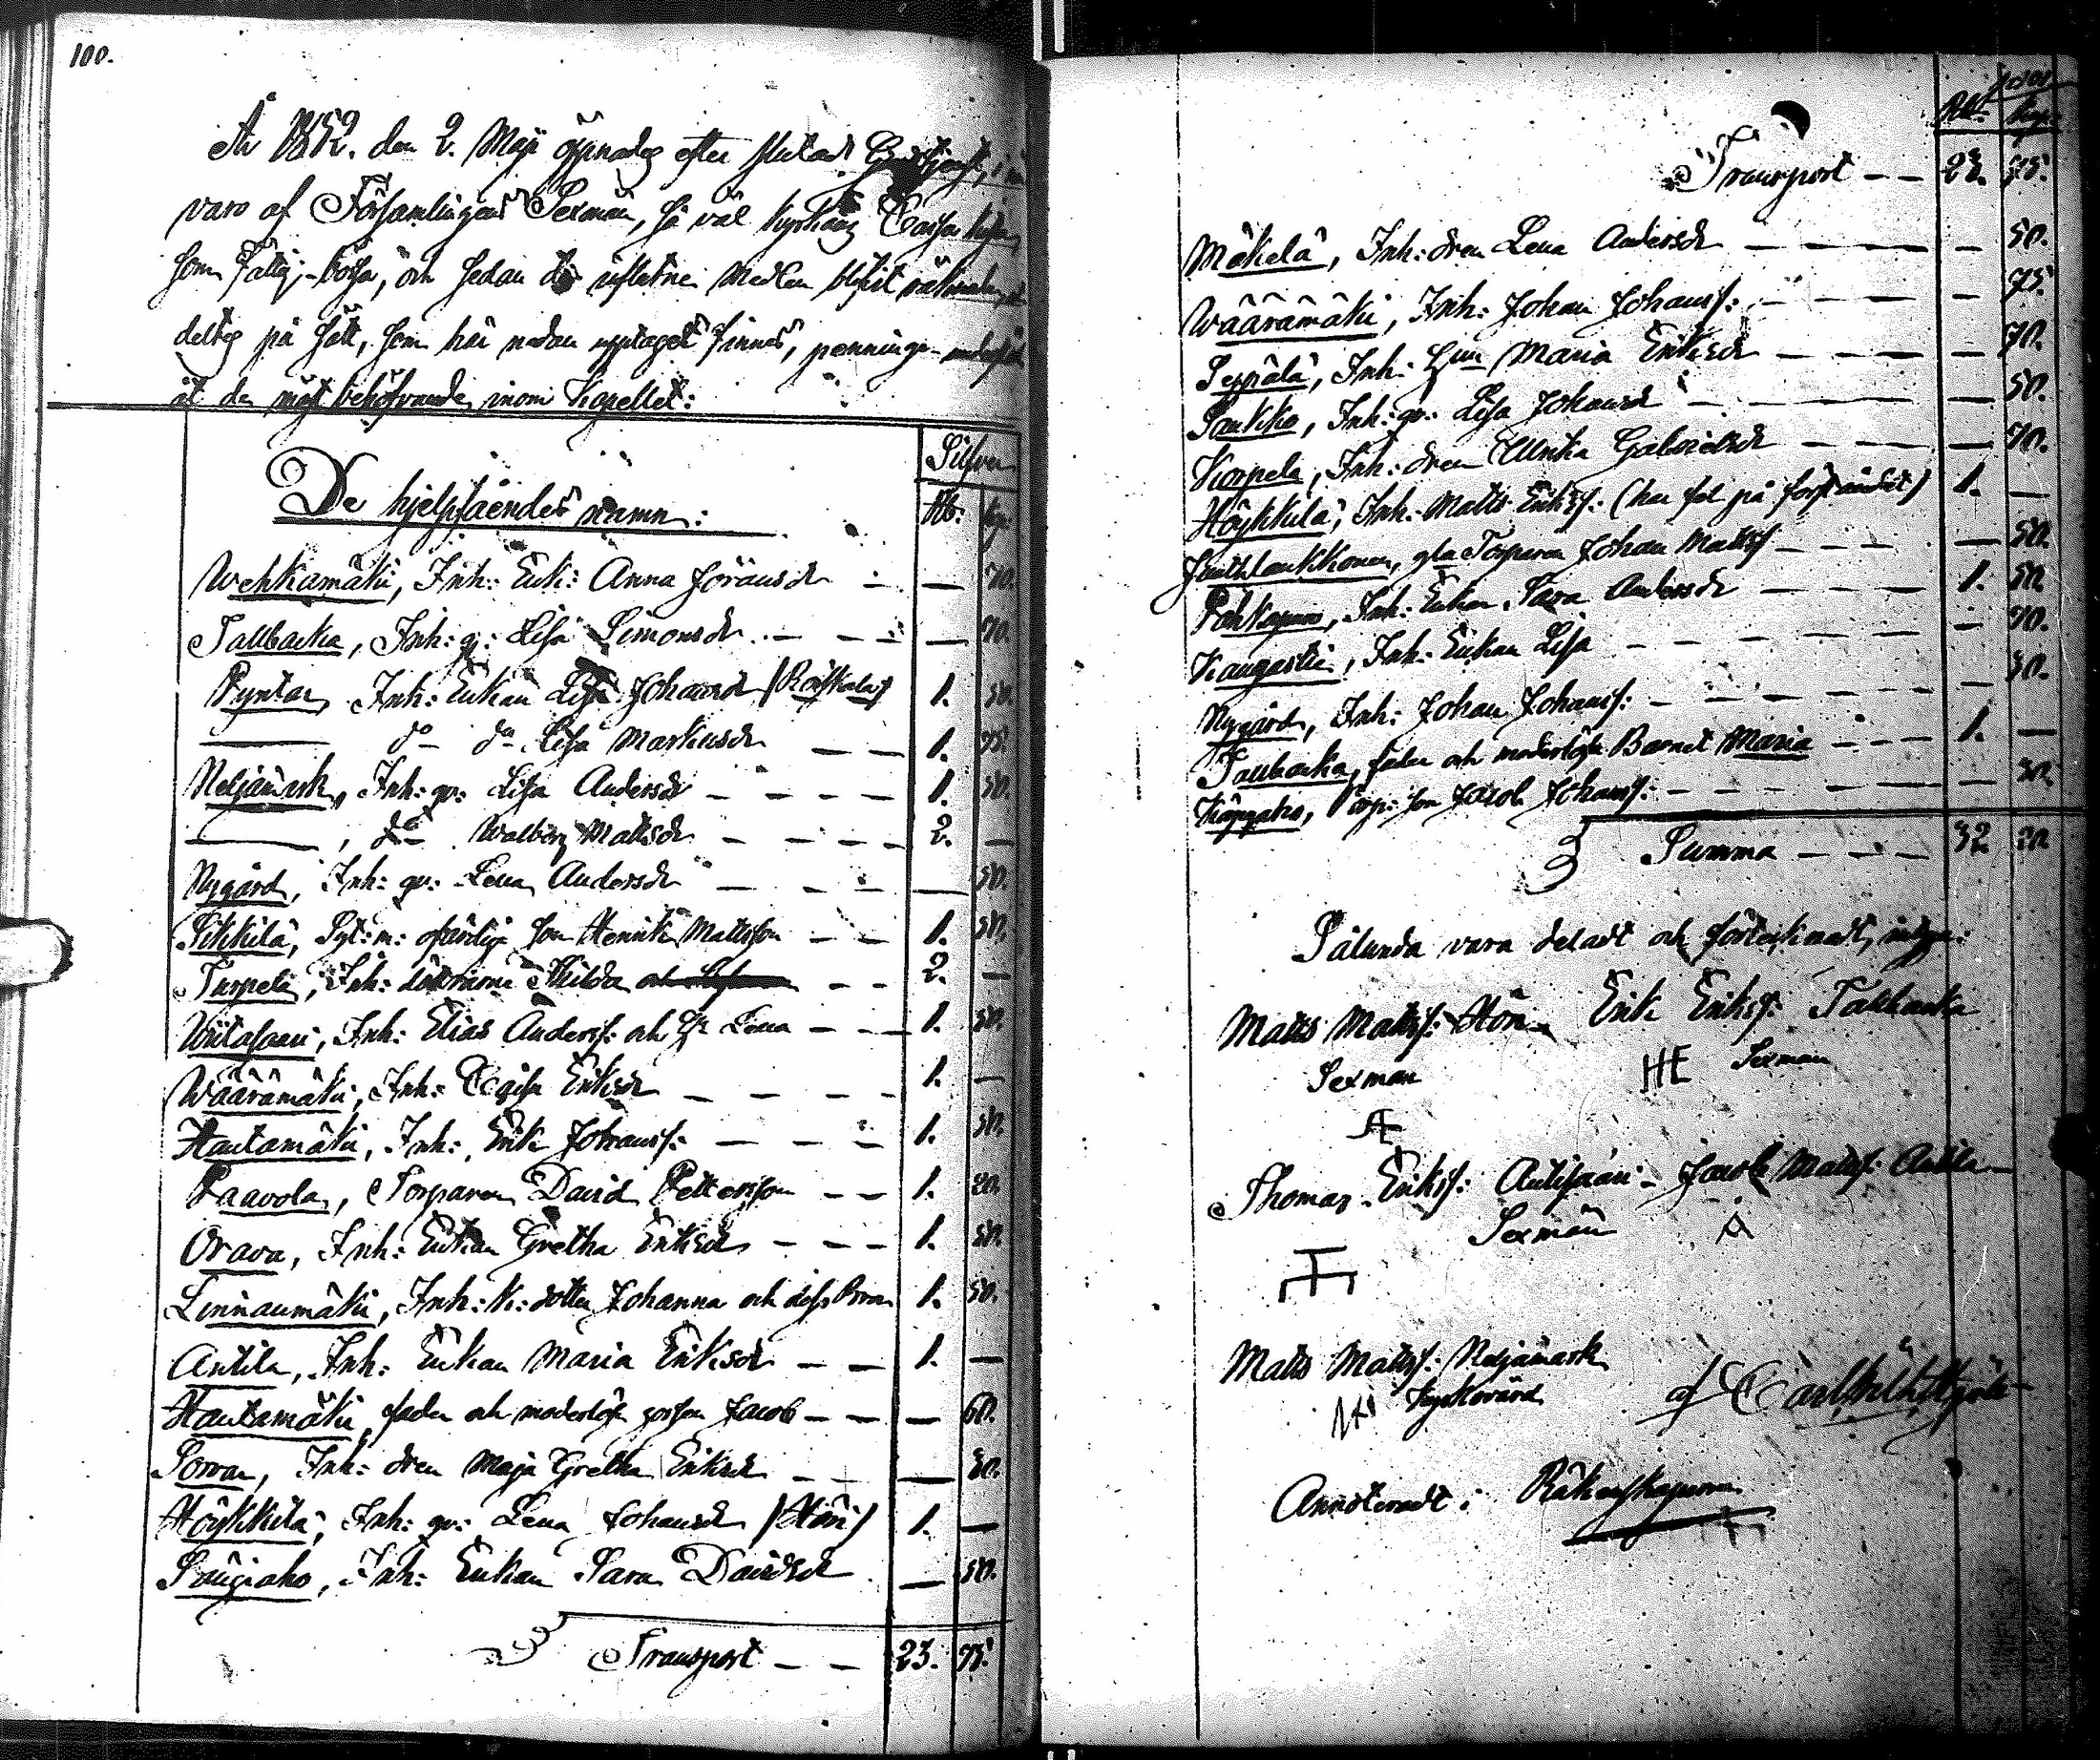 100.
År 1852. den 2. Maji öpnades efter slutad Gudstjenst, i när
varo af Församlingens Sexmän, så väl Kyrkans Cassa Kista
som Fattig-bössa, och sedan de influtne Medlen blifvit räknade,
deltes på sätt, som här nedan upptaget finnes, penninge-understöd
åt de mäst behöfvande inom Kapellet:
De hjelpfåendes namn:
Silfver
Rb: kop:
Wehkamäki, Inh: Enk: Anna Göransdr — — 70.
Tallbacka, Inh: gr: Lisa Simonsdr — — 70.
Pyntar, Inh: Enkan Lisa Johansdr /Räiskälä/ 1. 50.
— do do Lisa Markusdr — — 1. 75.
Neljämark, Inh: gr: Lisa Andersdr — — 1. 50.
—, do Walborg Mattsdr — — 2. —
Nygård, Inh: gr: Lena Andersdr — — 50.
Sikkilä, Sgt: m: ofärdige son Henrik Mattsson — — 1. 50.
Turpela, Inh: Hilda och — — 2. —
Wiitasaari, Inh: Elias Anderss: och Hu Lena — — 1. 50.
Wäärämäki, Inh: Caisa Eriksdr — — 1. —
Hautamäki, Inh: Erik Johanss: — — 1. 50.
Paavola, Torparen David Pettersson — — 1. 20.
Orava, Inh: Enkan Gretha Eriksdr — — 1. 50.
Linnanmäki, Inh: K: dotter Johanna och dess Barn 1. 50.
Antila, Inh: Enkan Maria Eriksdr — — 1. —
Hautamäki, fader och moderlöse gossen Jacob — — 60.
Sorvar, Inh: dren Maja Gretha Eriksdr — — 30.
Höykkilä, Inh: gr: Lena Johansdr /Höri/ 1. —
Sougiaho, Inh: Enkan Sara Davidsdr — 50.
Transport — — 23. 75.
Rb: kop:
Transport — — 23. 75.
Mäkelä, Inh: dren Lena Andersdr — — 50.
Wäärämäki, Inh: Johan Johanss: — — 75.
Seppälä, Inh: Hun Maria Eriksdr — — 70.
Saukko, Inh: gr: Lisa Johansdr — — 50.
Korpela, Inh: dren Ulrika Gabrielsdr — — 70.
Höykkilä, Inh: Matts Erikss: (har fel på förståndet) 1. —
gla Torparen Johan Mattss — — 50.
Inh: Enkan Sara Andersdr — — 1. 50.
Kangastie, Inh: Enkan Lisa — — 70.
Nygård, Inh: Johan Johanss: — — 50.
Tallbacka, fader och moderlösa Barnet Maria — — 1. —
son Jacob Johanss: — —
Summa — — 32 20
Sålunda vara deladt och förtecknadt, intyga:
Matts Mattss: Höri Erik Erikss: Tallbacka
Sexman HE Sexman
Thomas Erikss: Antisaari Jacob Mattss: Antila
Sexmän A
Matts Mattss: Neljämark
Kyrkovärd
Annoteradt i Räkenskaperna